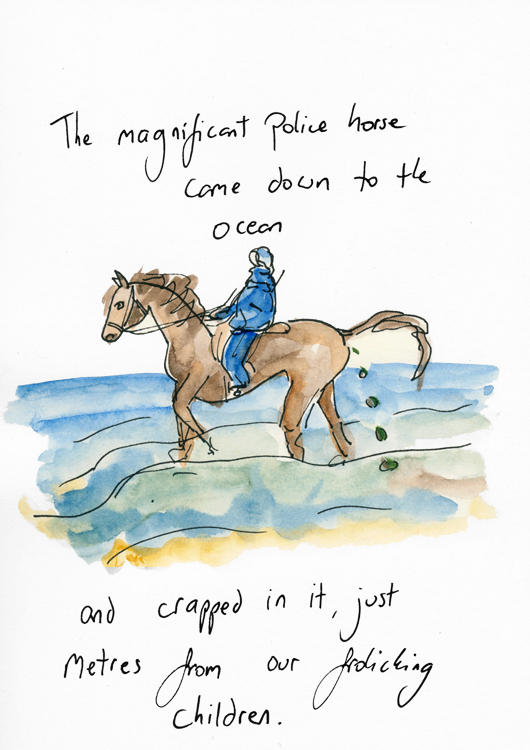 The magnificant Police horse
came down to the
ocean
and crapped in it, just
Metres from our frolicking
children.